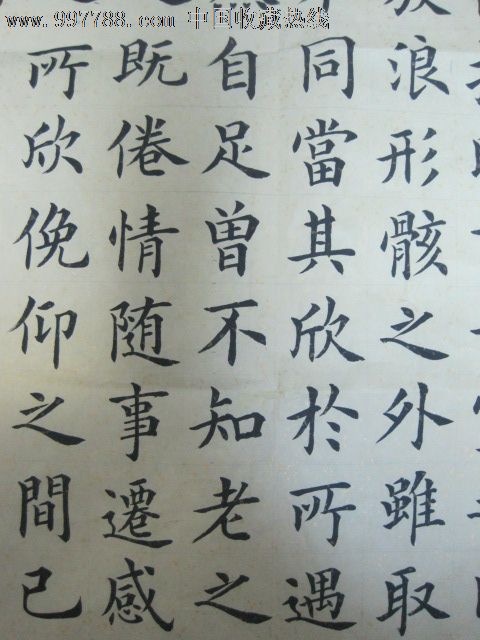 www.997788.com 中国收藏热线
浪形骸之外雖取
同當其欣於所遇
自足曽不知老之
既倦情随事遷感
所欣俛仰之間已